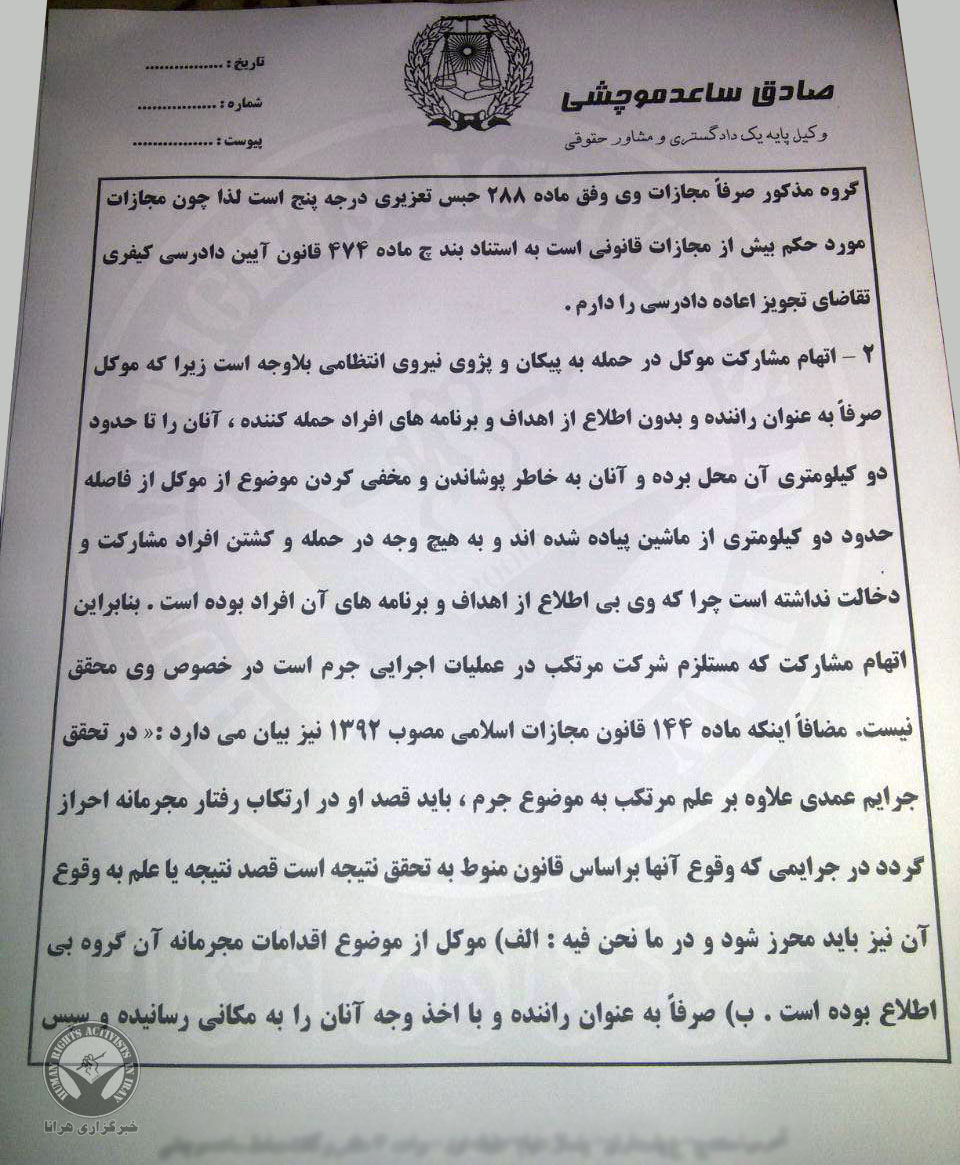 صادق ساعدموچشی
وکیل پایه یک دادگستری و مشاور حقوقی
تاریخ : ................
شماره : ................
پیوست : ................
گروه مذکور صرفاً مجازات وی وفق ماده ۲۸۸ حبس تعزیری درجه پنج است لذا چون مجازات
مورد حکم بیش از مجازات قانونی است به استناد بند چ ماده ۴۷۴ قانون آیین دادرسی کیفری
تقاضای تجویز اعاده دادرسی را دارم .
۲ – اتهام مشارکت موکل در حمله به پیکان و پژوی نیروی انتظامی بلاوجه است زیرا که موکل
صرفاً به عنوان راننده و بدون اطلاع از اهداف و برنامه های افراد حمله کننده ، آنان را تا حدود
دو کیلومتری آن محل برده و آنان به خاطر پوشاندن و مخفی کردن موضوع از موکل از فاصله
حدود دو کیلومتری از ماشین پیاده شده اند و به هیچ وجه در حمله و کشتن افراد مشارکت و
دخالت نداشته است چرا که وی بی اطلاع از اهداف و برنامه های آن افراد بوده است . بنابراین
اتهام مشارکت که مستلزم شرکت مرتکب در عملیات اجرایی جرم است در خصوص وی محقق
نیست. مضافاً اینکه ماده ۱۴۴ قانون مجازات اسلامی مصوب ۱۳۹۲ نیز بیان می دارد :« در تحقق
جرایم عمدی علاوه بر علم مرتکب به موضوع جرم ، باید قصد او در ارتکاب رفتار مجرمانه احراز
گردد در جرایمی که وقوع آنها براساس قانون منوط به تحقق نتیجه است قصد نتیجه یا علم به وقوع
آن نیز باید محرز شود و در ما نحن فیه : الف) موکل از موضوع اقدامات مجرمانه آن گروه بی
اطلاع بوده است . ب) صرفاً به عنوان راننده و با اخذ وجه آنان را به مکانی رسانیده و سپس
HUMAN RIGHTS ACTIVISTS IN IRAN
خبرگزاری هرانا